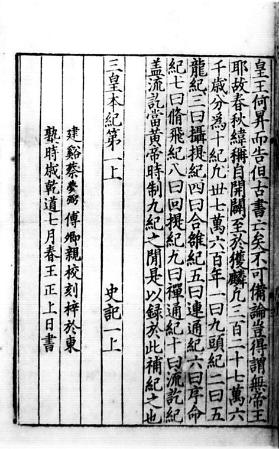 皇王何昇而告但古書亡矣不可備論豈得謂無帝王
耶故春秋緯稱自開闢至於獲麟凡三百二十七萬六
千歲分為十紀凡丗七萬六百年一曰九頭紀二曰五
龍紀三曰攝提紀四曰合雒紀五曰連通紀六曰序命
紀七曰脩飛紀八曰回提紀九曰禪通紀十曰流訖紀
蓋流訖當黃帝時制九紀之間是以錄於此補紀之也
三皇本紀第一上　史記一上
建谿蔡夢弼傅卿親校刻梓於東
塾時歲乾道七月春王正上日書